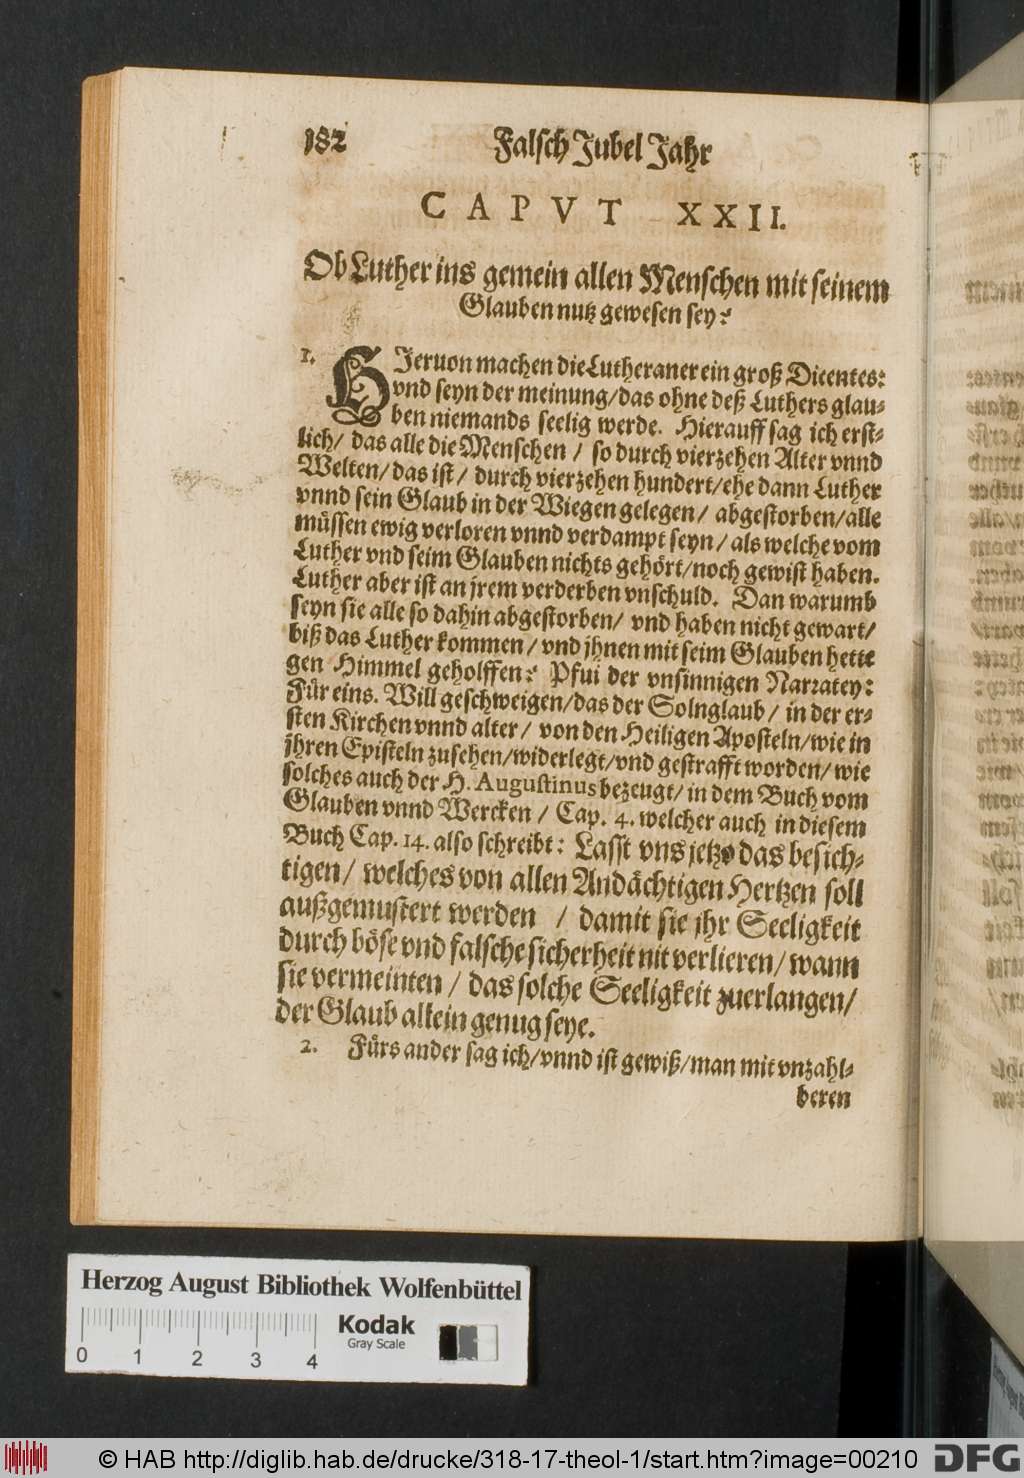 182 Falsch Jubel Jahr
CAPVT XXII.
Ob Luther ins gemein allen Menschen mit seinem
Glauben nutz gewesen sey?
1. HJeruon machen die Lutheraner ein groß Dicentes:
vnd seyn der meinung/das ohne deß Luthers glau-
ben niemands seelig werde. Hierauff sag ich erst-
lich/ das alle die Menschen / so durch vierzehen Alter vnnd
Welten/das ist/ durch vierzehen hundert/ehe dann Luther
vnnd sein Glaub in der Wiegen gelegen/ abgestorben/alle
müssen ewig verloren vnnd verdampt seyn/ als welche vom
Luther vnd seim Glauben nichts gehört/noch gewist haben.
Luther aber ist an jrem verderben vnschuld. Dan warumb
seyn sie alle so dahin abgestorben/ vnd haben nicht gewart/
biß das Luther kommen/ vnd jhnen mit seim Glauben hette
gen Himmel geholffen? Pfui der vnsinnigen Narratey:
Für eins. Will geschweigen/das der Solnglaub/ in der er-
sten Kirchen vnnd alter/ von den Heiligen Aposteln/wie in
jhren Episteln zusehen/widerlegt/vnd gestrafft worden/ wie
solches auch der H. Augustinus bezeugt/ in dem Buch vom
Glauben vnnd Wercken / Cap. 4. welcher auch in diesem
Buch Cap. 14. also schreibt: Lasst vns jetzo das besich-
tigen/ welches von allen Andächtigen Hertzen soll
außgemustert werden / damit sie jhr Seeligkeit
durch böse vnd falsche sicherheit nit verlieren/ wann
sie vermeinten / das solche Seeligkeit zuerlangen/
der Glaub allein genug seye.
2. Fürs ander sag ich/vnnd ist gewiß/man mit vnzahl-
beren
Herzog August Bibliothek Wolfenbüttel
0 1 2 3 4
Kodak
Gray Scale
© HAB http://diglib.hab.de/drucke/318-17-theol-1/start.htm?image=00210
DFG